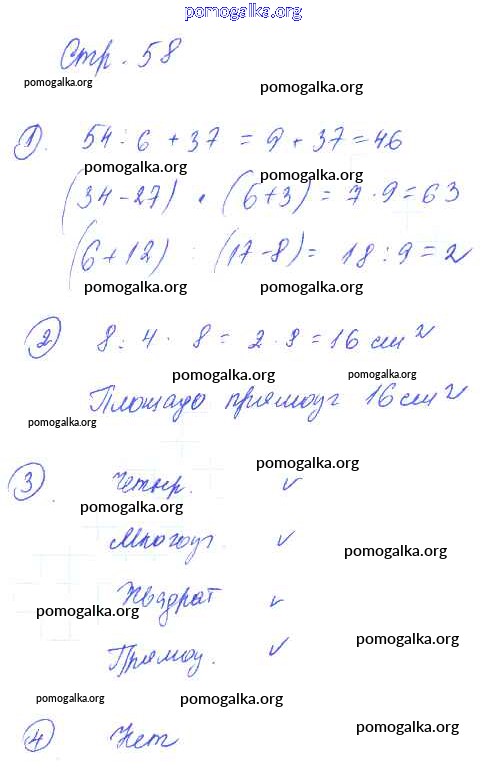 pomogalka.org
Стр. 58
pomogalka.org pomogalka.org
1). 54 : 6 + 37 = 9 + 37 = 46
pomogalka.org pomogalka.org
(34 - 27) · (6 + 3) = 7 · 9 = 63
(6 + 12) : (17 - 8) = 18 : 9 = 2
pomogalka.org pomogalka.org
2) 8 : 4 · 8 = 2 · 8 = 16 см²
pomogalka.org pomogalka.org
Площадь прямоуг 16 см²
pomogalka.org
pomogalka.org
3) Четыр. ✓
pomogalka.org
Многоуг. ✓
pomogalka.org
Квадрат ✓
pomogalka.org
pomogalka.org
Прямоу. ✓
pomogalka.org pomogalka.org
4) Нет
pomogalka.org